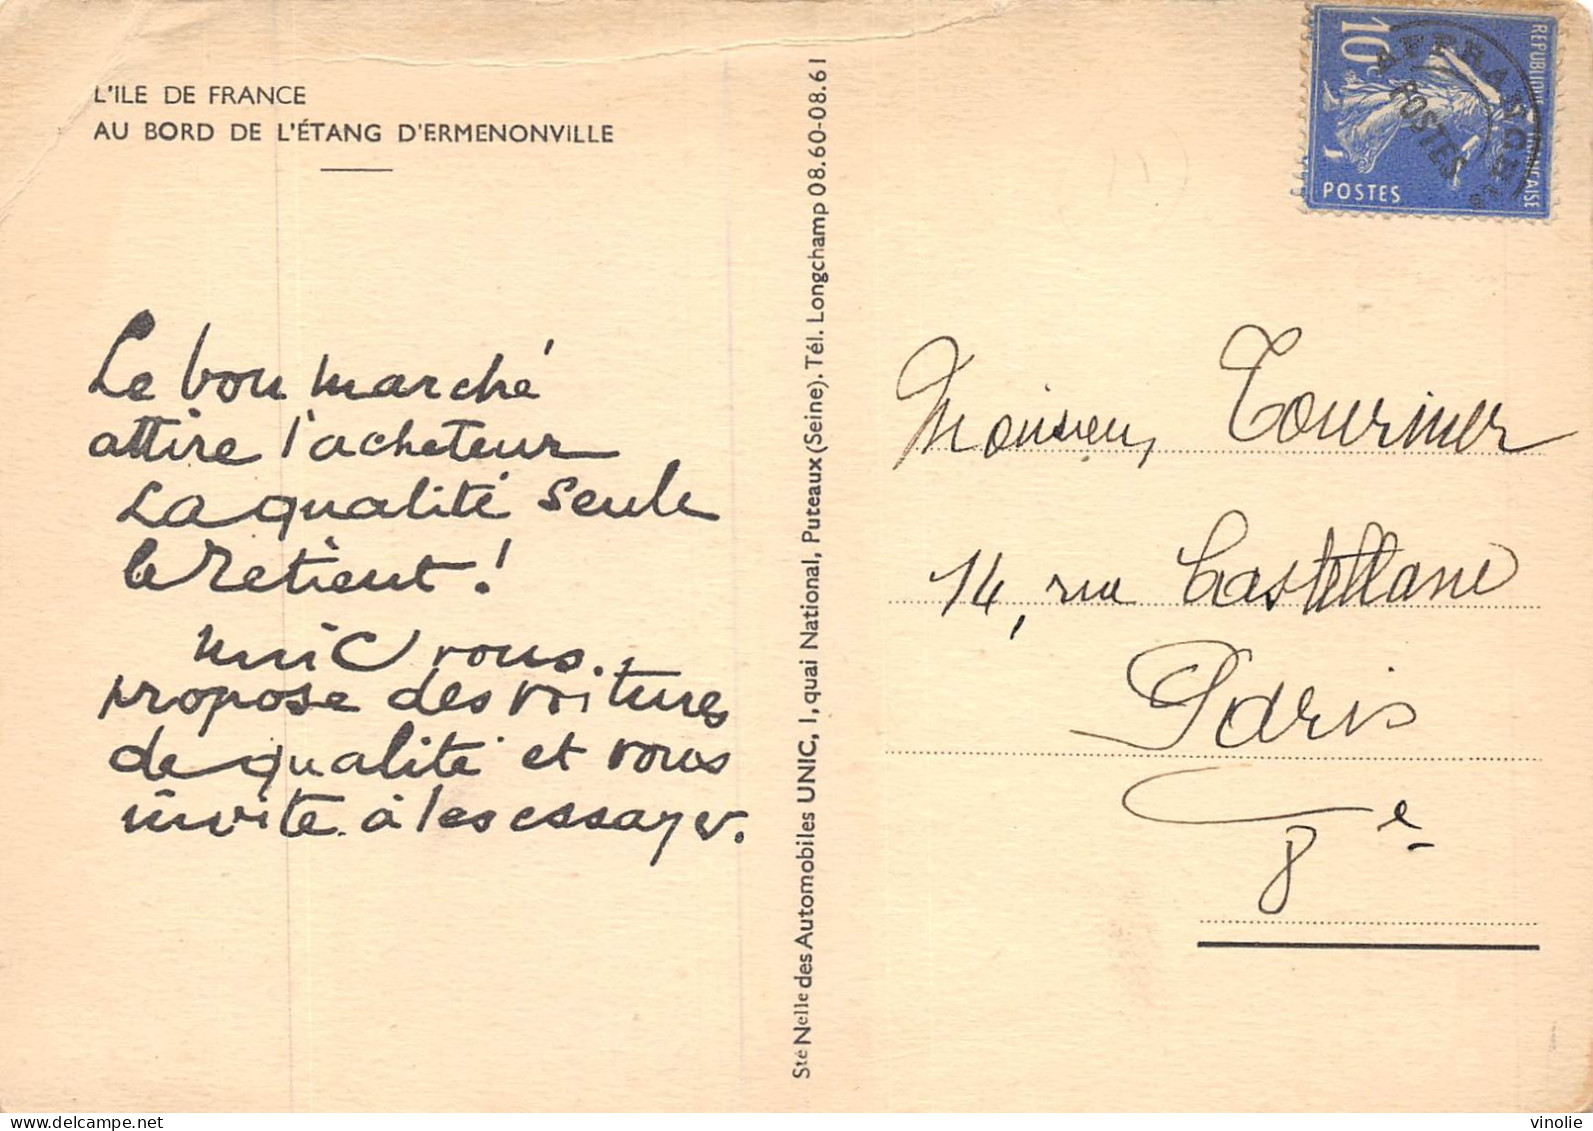 L'ILE DE FRANCE
AU BORD DE L'ÉTANG D'ERMENONVILLE
Le bon marché
attire l'acheteur
La qualité seule
le retient!
uniC vous
propose des voitures
de qualité et vous
invite à les essayer.
Sté Nelle des Automobiles UNIC, 1, quai National, Puteaux (Seine). Tél. Longchamp 08.60-08.61
10c
REPUBLIQUE FRANÇAISE
POSTES
AFFRANCHts
POSTES
Monsieur Tournier
14, rue Castellane
Paris
8e
delcampe.net
vinolie